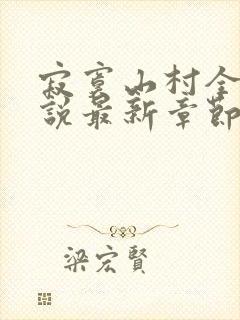 寂寞山村全
說最新章節
梁宏賢